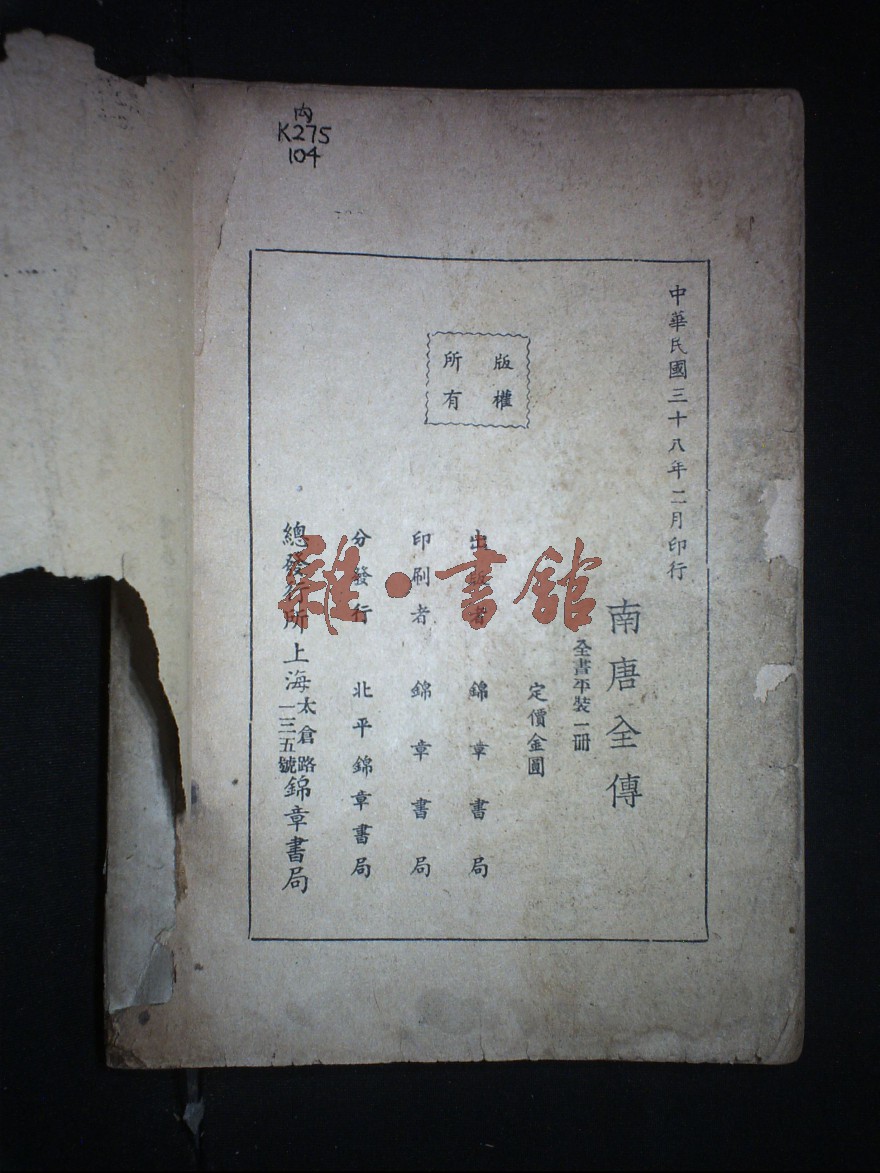 内
K275
104
中華民國三十八年二月印行
南唐全傳
全書平裝一冊
定價金圓
版權
所有
出版者 錦章書局
印刷者 錦章書局
分發行 北平錦章書局
總發行所上海太倉路一三五號錦章書局
雜·書館